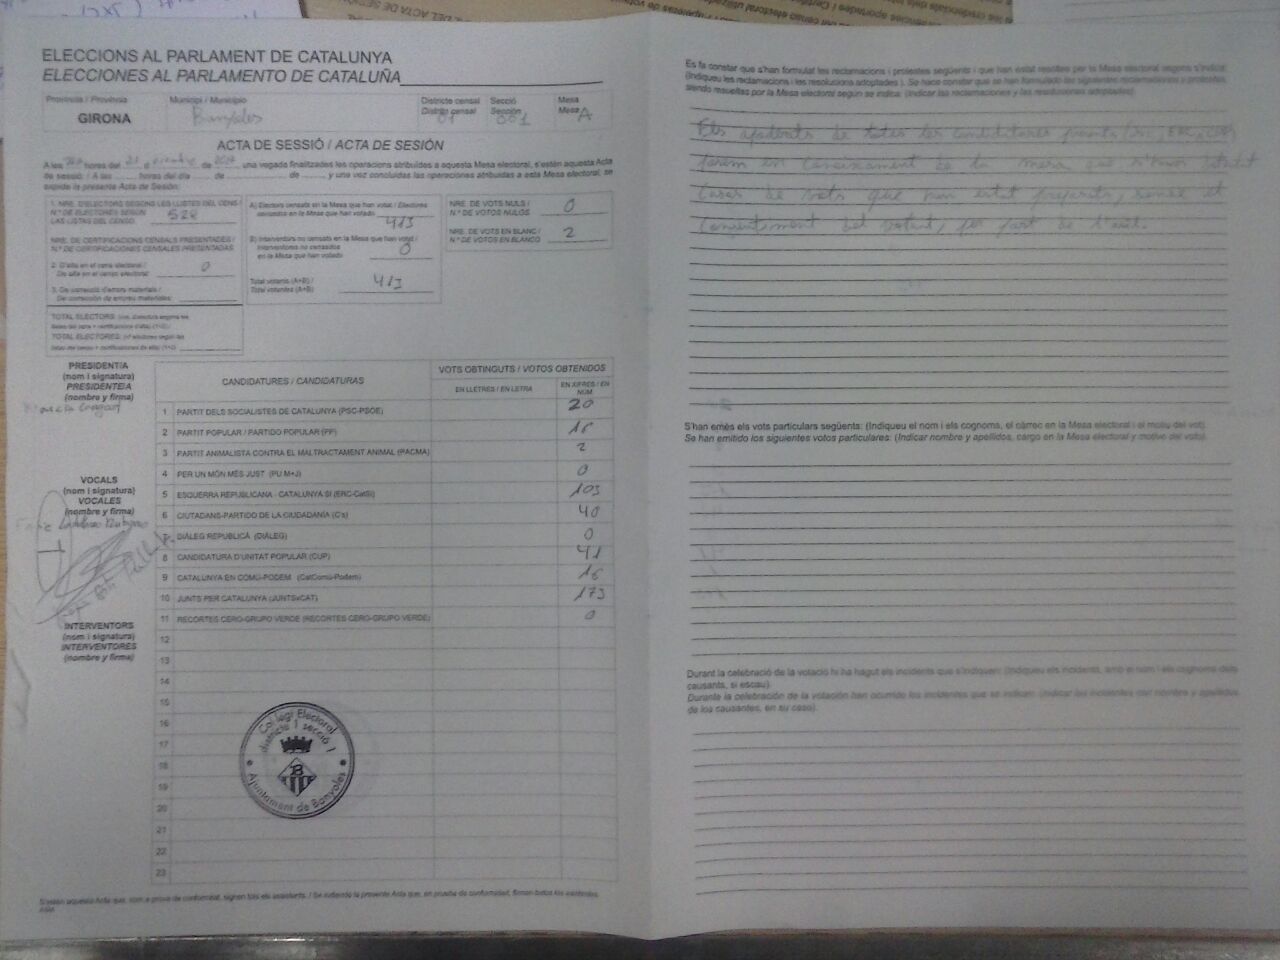 ELECCIONS AL PARLAMENT DE CATALUNYA
ELECCIONES AL PARLAMENTO DE CATALUÑA
Província / Provincia
GIRONA
Municipi / Municipio
Banyoles
Districte censal
Distrito censal
01
Secció
Sección
001
Mesa
Mesa
A
ACTA DE SESSIÓ / ACTA DE SESIÓN
A les hores del 21 de de 2017 una vegada finalitzades les operacions atribuïdes a aquesta Mesa electoral, s'estén aquesta Acta
de sessió / A las horas del día de de y una vez concluidas las operaciones atribuidas a esta Mesa electoral, se
expide la presente Acta de Sesión:
1. NRE. D'ELECTORS SEGONS LES LLISTES DEL CENS /
N.º DE ELECTORES SEGÚN
LAS LISTAS DEL CENSO
NRE. DE CERTIFICACIONS CENSALS PRESENTADES /
N.º DE CERTIFICACIONES CENSALES PRESENTADAS
2. D'alta en el cens electoral /
De alta en el censo electoral: 0
3. De correcció d'errors materials /
De corrección de errores materiales:
TOTAL ELECTORS:
TOTAL ELECTORES:
A) Electors censats en la Mesa que han votat / Electores
censados en la Mesa que han votado 413
B) Interventors no censats en la Mesa que han votat /
Interventores no censados
en la Mesa que han votado 0
Total votants (A+B) /
Total votantes (A+B) 413
NRE. DE VOTS NULS /
N.º DE VOTOS NULOS 0
NRE. DE VOTS EN BLANC /
N.º DE VOTOS EN BLANCO 2
PRESIDENT/A
(nom i signatura)
PRESIDENTE/A
(nombre y firma)
VOCALS
(nom i signatura)
VOCALES
(nombre y firma)
INTERVENTORS
(nom i signatura)
INTERVENTORES
(nombre y firma)
CANDIDATURES / CANDIDATURAS
VOTS OBTINGUTS / VOTOS OBTENIDOS
EN LLETRES / EN LETRA
EN XIFRES / EN NÚM.
1 PARTIT DELS SOCIALISTES DE CATALUNYA (PSC-PSOE) 20
2 PARTIT POPULAR / PARTIDO POPULAR (PP) 16
3 PARTIT ANIMALISTA CONTRA EL MALTRACTAMENT ANIMAL (PACMA) 2
4 PER UN MÓN MÉS JUST (PUM+J) 0
5 ESQUERRA REPUBLICANA - CATALUNYA SÍ (ERC-CatSí) 103
6 CIUTADANS-PARTIDO DE LA CIUDADANÍA (C's) 40
7 DIÀLEG REPUBLICÀ (DIÀLEG) 0
8 CANDIDATURA D'UNITAT POPULAR (CUP) 41
9 CATALUNYA EN COMÚ-PODEM (CatComú-Podem) 16
10 JUNTS PER CATALUNYA (JUNTSxCAT) 173
11 RECORTES CERO-GRUPO VERDE (RECORTES CERO-GRUPO VERDE) 0
12
13
14
15
16
17
18
19
20
21
22
23
Col·legi Electoral
districte 1 secció 1
Ajuntament de Banyoles
S'estén aquesta Acta que, com a prova de conformitat, signen tots els assistents. / Se extiende la presente Acta que, en prueba de conformidad, firman todos los asistentes.
Es fa constar que s'han formulat les reclamacions i protestes següents i que han estat resoltes per la Mesa electoral segons s'indica:
(Indiqueu les reclamacions i les resolucions adoptades). Se hace constar que se han formulado las siguientes reclamaciones y protestas
siendo resueltas por la Mesa electoral según se indica: (Indicar las reclamaciones y las resoluciones adoptadas)
Els apoderats de totes les candidatures presents
posem en coneixement de la mesa que s'han
casos de vots que han estat preparats, sense el
consentiment del votant, per part de
S'han emès els vots particulars següents: (Indiqueu el nom i els cognoms, el càrrec en la Mesa electoral i el motiu del vot).
Se han emitido los siguientes votos particulares: (Indicar nombre y apellidos, cargo en la Mesa electoral y motivo del voto).
Durant la celebració de la votació hi ha hagut els incidents que s'indiquen: (Indiqueu els incidents, amb el nom i els cognoms dels
causants, si escau).
Durante la celebración de la votación han ocurrido los incidentes que se indican: (Indicar los incidentes con nombre y apellidos
de los causantes, en su caso).